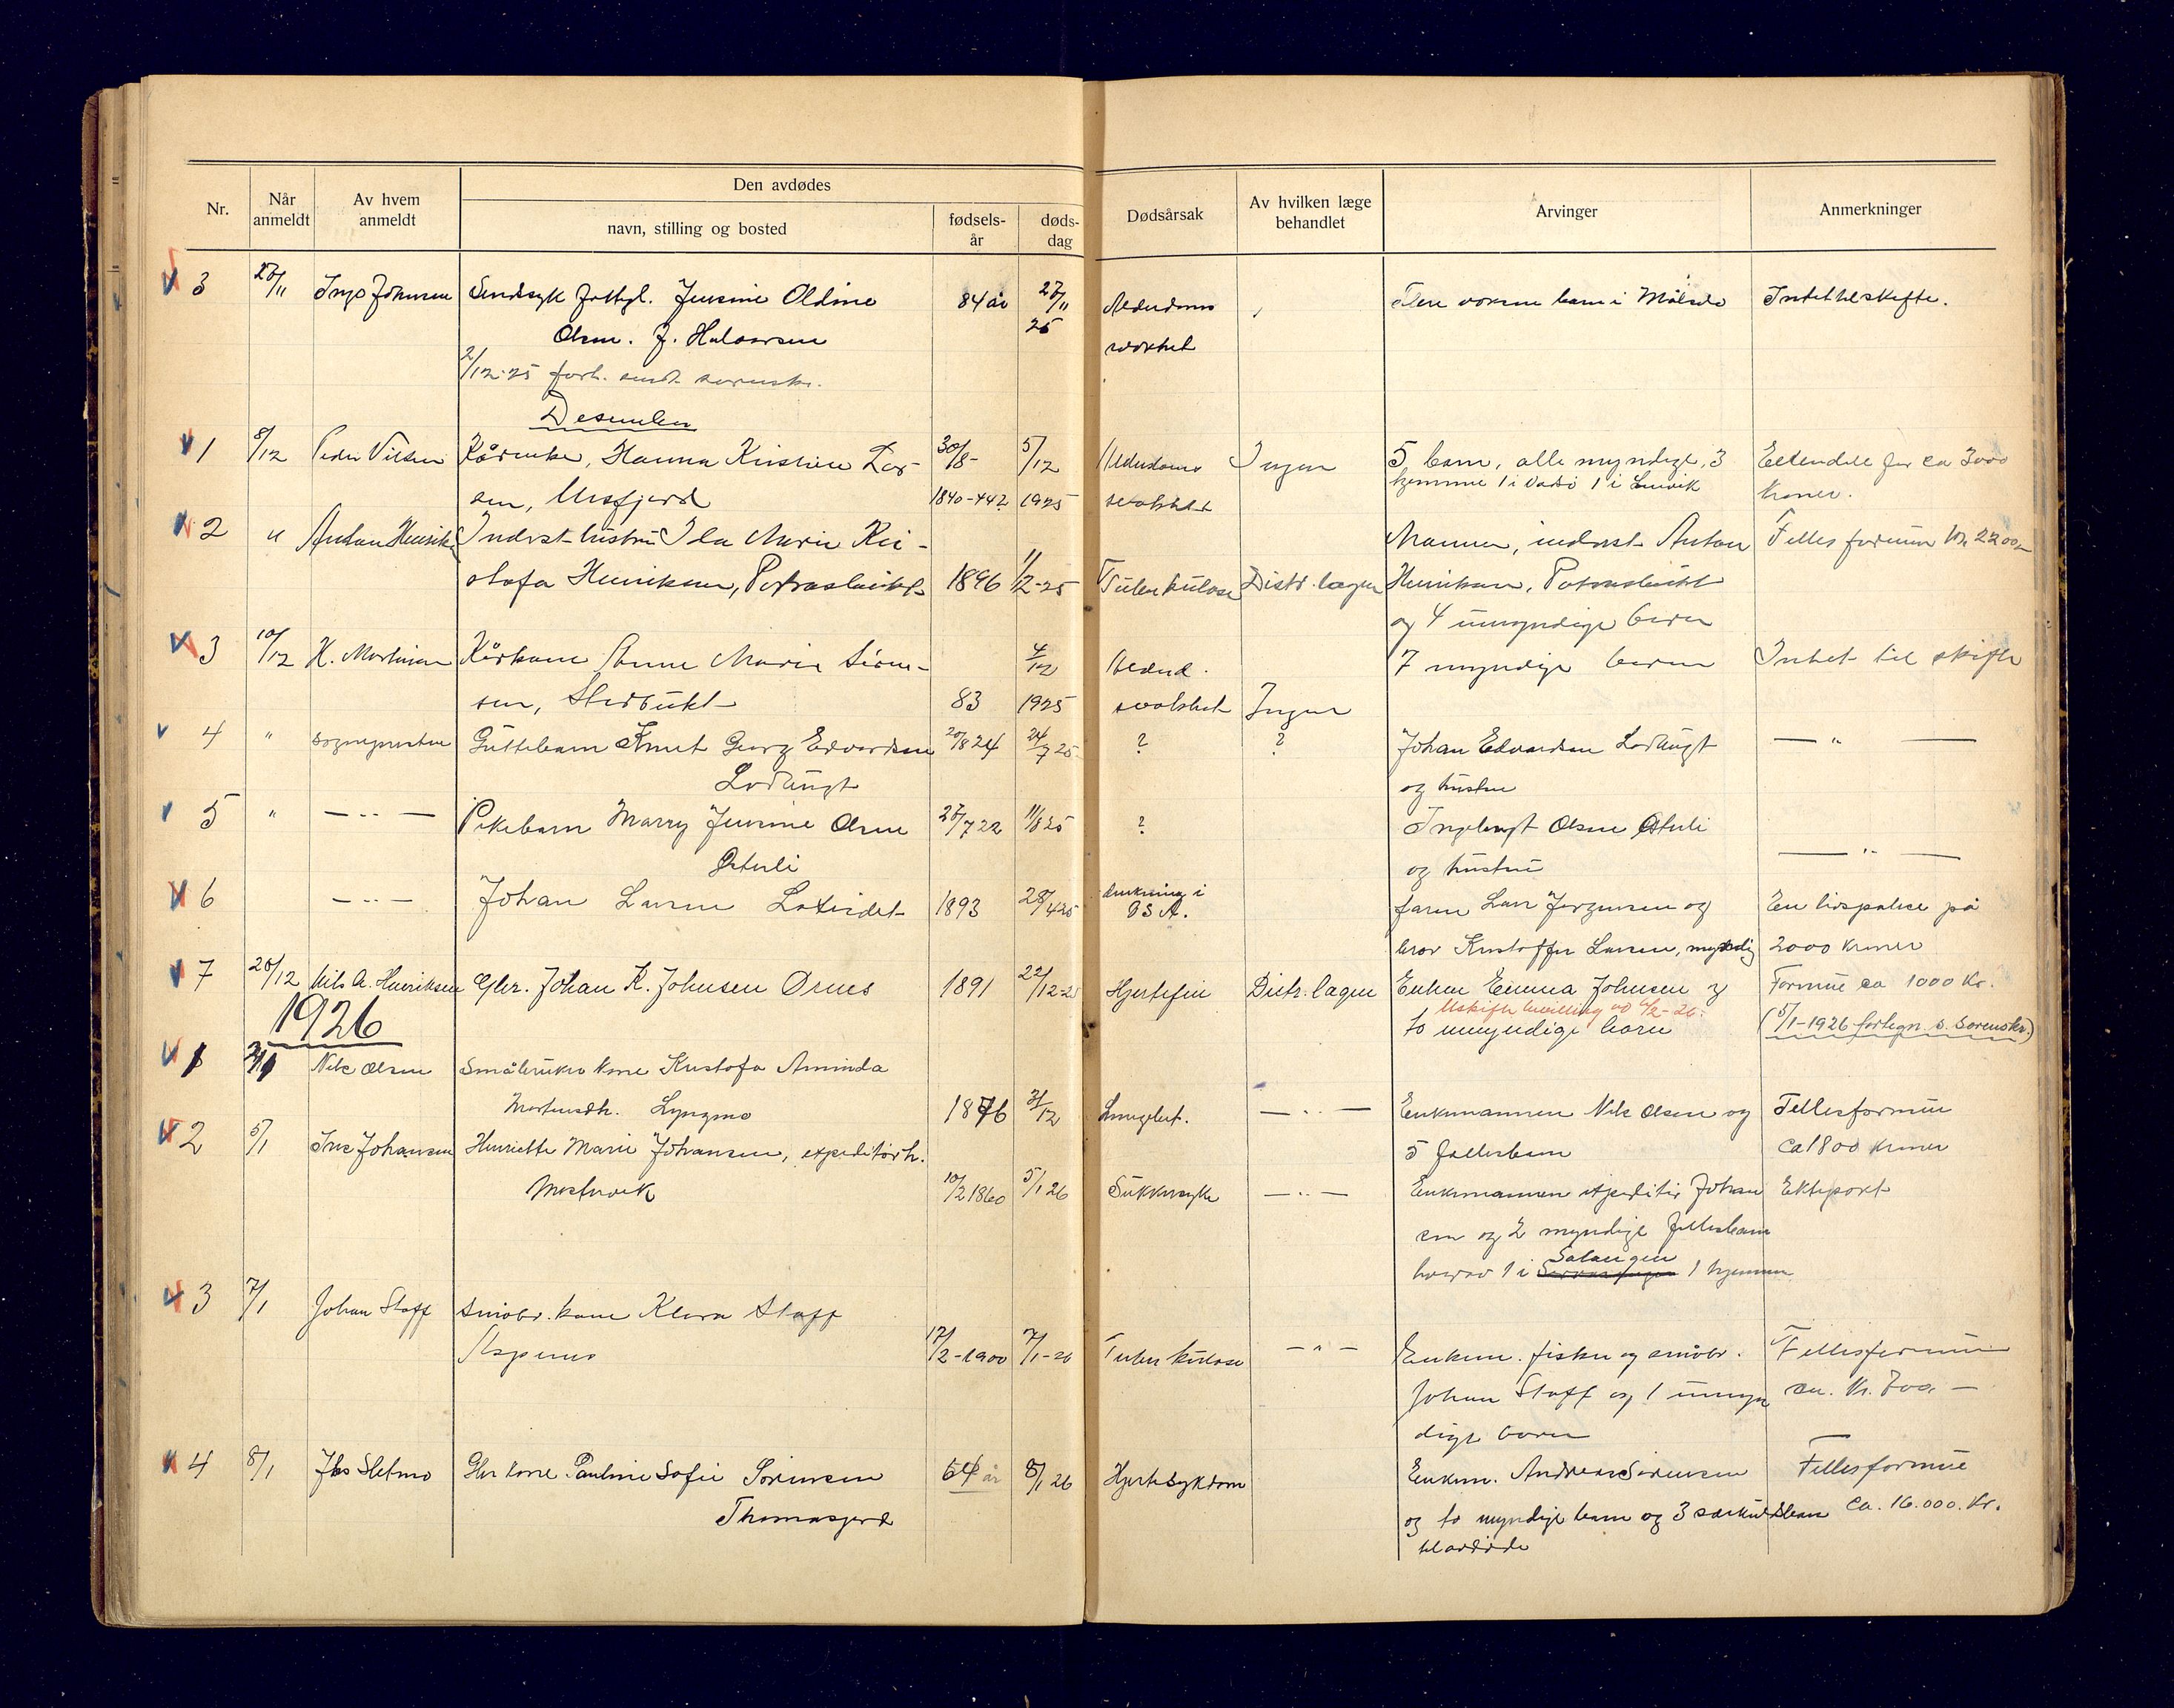 Nr.
Når anmeldt
Av hvem anmeldt
Den avdødes
navn, stilling og bosted
fødsels-år
døds-dag
Dødsårsak
Av hvilken læge behandlet
Arvinger
Anmerkninger
3 27/11 Inga Johnsen Sindsyk Jensine Oldine 84 år 27/11 Alderdoms barn i Målselv Intet til skifte.
Olsen. J. Halvorsen 25 svakhet
2/12-25 sendt sorenskr.
Desember
1 8/12 Peder Nilsen Kårenke, Hanna Kristine Lar- 30/8- 5/12 Alderdoms Ingen 5 barn, alle myndige, 3 Eiendele for ca 3000
sen, 1840-442 1925 svakhet hjemme 1 i Vadsö 1 i kroner.
2 " Anton Henriks. Inderst hustru Ida Marie Kri- Mannen, inderst Anton Fellesformue kr. 2200
stofa Henriksen, 1896 1/12-25 Tuberkulose Distr. lægen Henriksen,
og 4 umyndige barn
3 10/12 K. Martinsen Kårkone Anne Marie Sören- 4/12 Alderd. 7 myndige barn Intet til skifte
sen, 83 1925 svakhet Ingen
4 " sognepresten Guttebarn Knut Georg Edvardsen 20/8 24 24/7 25 ? ? Johan Edvardsen — " —
og hustru
5 " — " — Pikebarn Marry Jensine Olsen 27/7 22 11/8 25 ? Ingebrigt Olsen
og hustru — " —
6 — " — Johan Larsen 1893 28/4 25 drukning i En livspolice på
U S A. faren Lars Jörgensen og
bror Kristoffer Larsen, myndig 2000 kroner
7 28/12 Nils A. Henriksen Gbr. Johan K. Johnsen Ørnes 1891 22/12-25 Hjertefeil Distr. lægen Enken Emma Johnsen og Formue ca 1000 Kr.
Uskifte bevilling 4/2-26.
to umyndige barn (5/1-1926 fortegn. s. Sorenskr.)
1926
1 Nils Olsen Småbruker kone Kristofa Aminda
Mortensdtr. Lyngmo 1876 31/12 Lungebet. — " — Enkemannen Nils Olsen og Fellesformue
2 5/1 Jens Johansen Henriette Marie Johansen, expeditörh. 5 fellesbarn ca 1800 kroner
10/2 1860 5/1 26 Sukkersyke — " — Enkemannen expeditör Johan Ektepakt
sen og 2 myndige fellesbarn
Salangen
hvorav 1 i 1 hjemme
3 7/1 Johan Staff Småbr. kone Klara Staff
17/2-1900 7/1-26 Tuberkulose — " — Enkem. fisker og småbr. Fellesformue
Johan Staff og 1 umyn ca. kr. 700. —
dige barn
4 8/1 Jhs Sletmo Gbr kone Pauline Sofie Sörensen 64 år 8/1 26 Hjertesykdom Enkem. Andreas Sörensen Fellesformue
Thomasjord og to myndige barn og 3 særkulsbarn ca. 16.000. Kr.
til avdöde